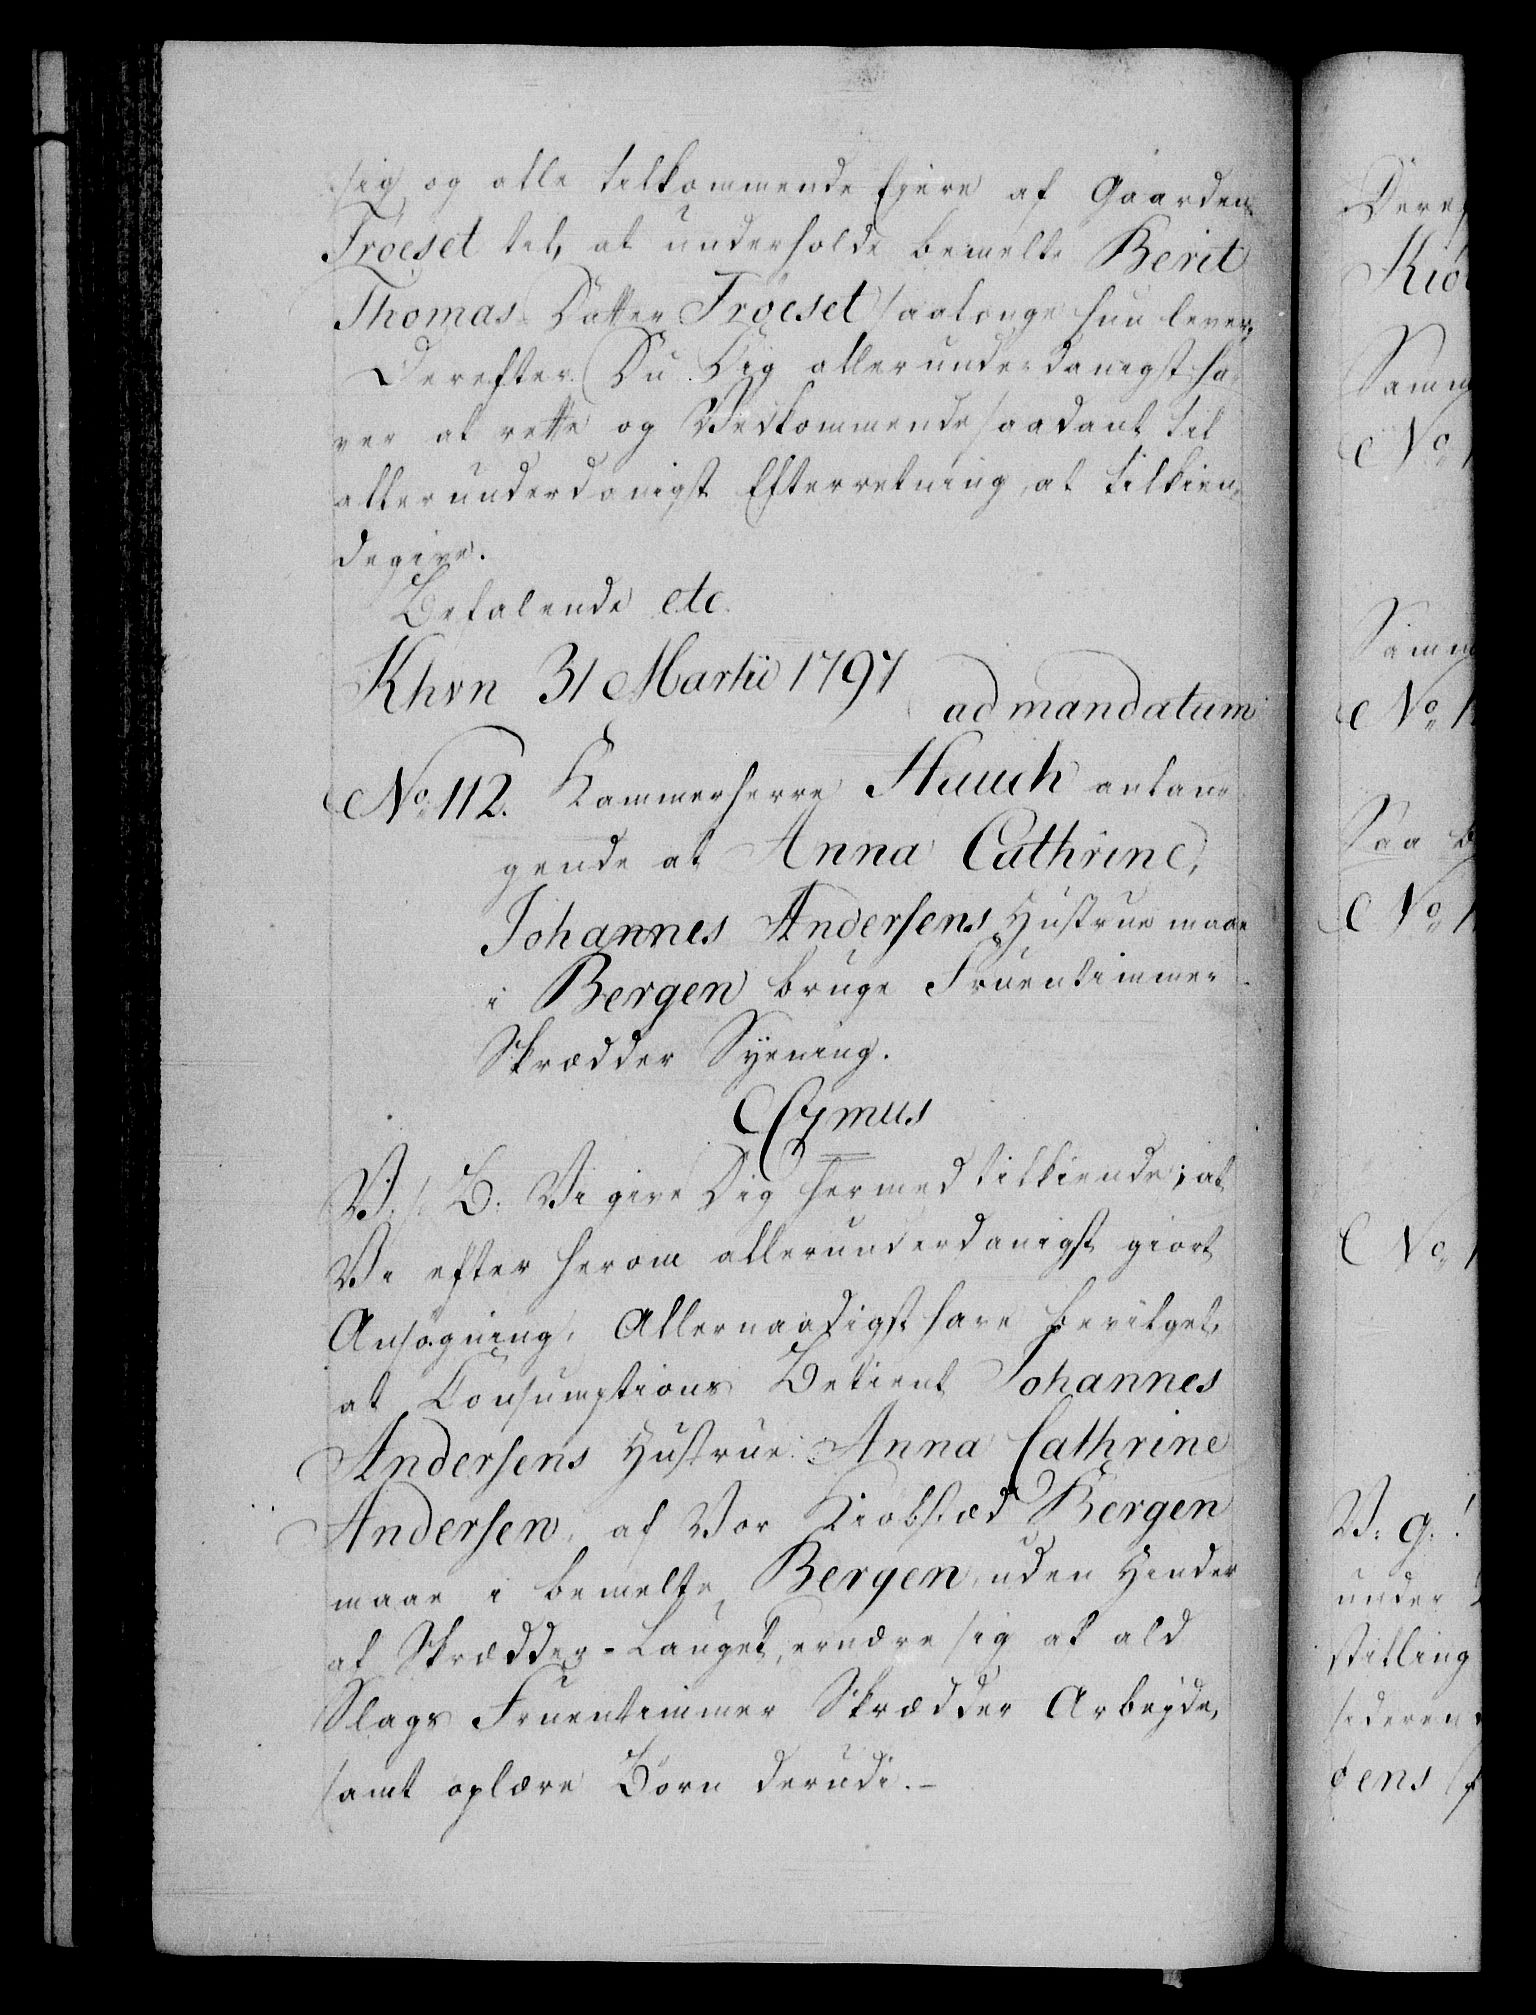 sig og alle tilkommende Ejere af Gaarden
Tröeset til, at underholde bemelte Berit
Thomas Datter Tröeset saalænge hun lever,
Derefter Du Dig allerunderdanigst ha-
ver at rette og Vedkommende saadant til
allerunderdanigst Efterretning at tilkien-
degive.
Befalende etc.
Khvn 31 Martii 1797
ad mandatum
No 112. Kammerherre Hauch anlan-
gende at Anna Cathrine,
Johannes Andersens Hustrue maae
i Bergen bruge Fruentimmer
Skrædder Syening.
C7mus
V. s. B. Vi give Dig hermed tilkiende, at
Vi efter herom allerunderdanigst giort
Ansøgning, Allernaadigst have bevilget,
at Consumptions Betient Johannes
Andersens Hustrue Anna Cathrine
Andersen, af Vor Kiøbstæd Bergen
maae i bemelte Bergen, uden Hinder
af Skrædder-Lauget, ernære sig af ald
Slags Fruentimmer Skrædder Arbejde,
samt oplære Børn derudi.-
Kiö
No 1
No 1
No 1
No 1
V: g.
under
stilling